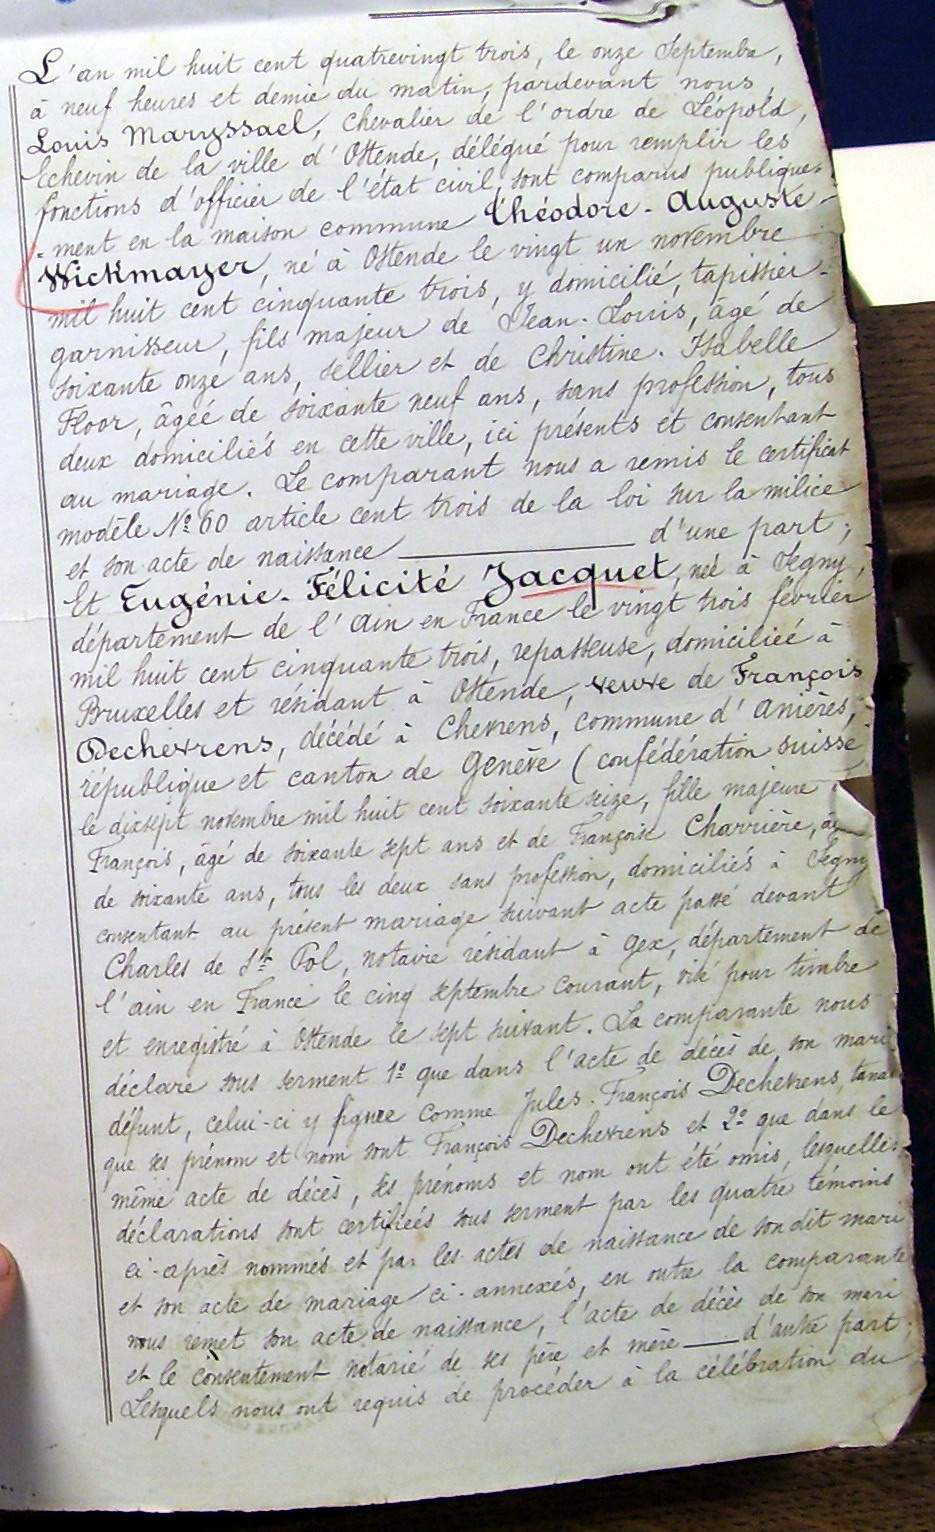 L'an mil huit cent quatrevingt trois, le onze Septembre,
à neuf heures et demie du matin, pardevant nous,
Louis Maryssael, Chevalier de l'ordre de Léopold,
Echevin de la ville d'Ostende, délégué pour remplir les
fonctions d'officier de l'état civil, sont comparus publique-
-ment en la maison commune Théodore-Auguste-
Wickmayer, né à Ostende le vingt un novembre
mil huit cent cinquante trois, y domicilié, tapissier-
garnisseur, fils majeur de Jean-Louis, âgé de
soixante onze ans, sellier et de Christine-Isabelle
Floor, âgée de soixante neuf ans, sans profession, tous
deux domiciliés en cette ville, ici présents et consentant
au mariage. Le comparant nous a remis le certificat
modèle Nº 60 article cent trois de la loi sur la milice
et son acte de naissance ——— d'une part;
Et Eugénie-Félicité Jacquet, née à Segny,
département de l'Ain en France le vingt trois février
mil huit cent cinquante trois, repasseuse, domiciliée à
Bruxelles et résidant à Ostende, veuve de François
Dechevrens, décédé à Chevrens, commune d'Anières,
république et canton de Genève (confédération suisse
le dixsept novembre mil huit cent soixante seize, fille majeure
François, âgé de soixante sept ans et de Françoise Charrière, âg
de soixante ans, tous les deux sans profession, domiciliés à Segny
consentant au présent mariage suivant acte passé devant
Charles de St Pol, notaire résidant à Gex, département de
l'ain en France le cinq septembre courant, visé pour timbre
et enregistré à Ostende le sept suivant. La comparante nous
déclare sous serment 1º que dans l'acte de décès de son mari
défunt, celui-ci y figure comme Jules-François Dechevrens, tandis
que ses prénom et nom sont François Dechevrens et 2º que dans le
même acte de décès, ses prénoms et nom ont été omis, lesquelles
déclarations sont certifiées sous serment par les quatre témoins
ci-après nommés et par les actes de naissance de son dit mari
et son acte de mariage ci-annexés, en outre la comparante
nous remet son acte de naissance, l'acte de décès de son mari
et le consentement notarié de ses père et mère —— d'autre part;
Lesquels nous ont requis de procéder à la célébration du